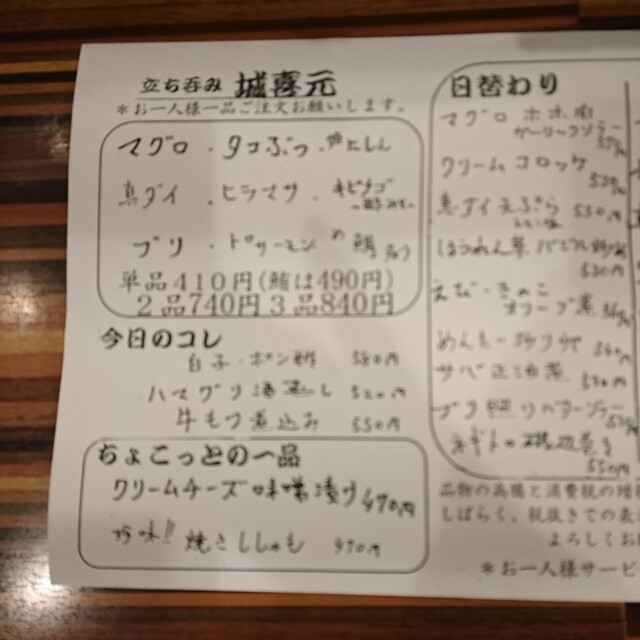 立ち呑み 城喜元
＊お一人様一品ご注文お願いします。
マグロ ・タコぶつ ・ にしん
真ダイ ・ヒラマサ ・ キビナゴ
ブリ ・トロサーモン
単品410円(鮪は490円)
2品740円3品840円
今日のコレ
白子・ポン酢 580円
ハマグリ酒蒸し 520円
牛もつ煮込み 550円
ちょこっとの一品
クリームチーズ味噌漬け 470円
珍味!! 焼きししゃも 470円
日替わり
マグロ ホホ肉
ガーリックソテー
クリームコロッケ
真ダイ天ぷら 550円
ほうれん草
530円
えび・きのこ
オリーブ煮
サバ
ブリ照り
550円
品物の高騰と消費税の増
しばらく、税抜きでの表
よろしくお
＊お一人様サービ